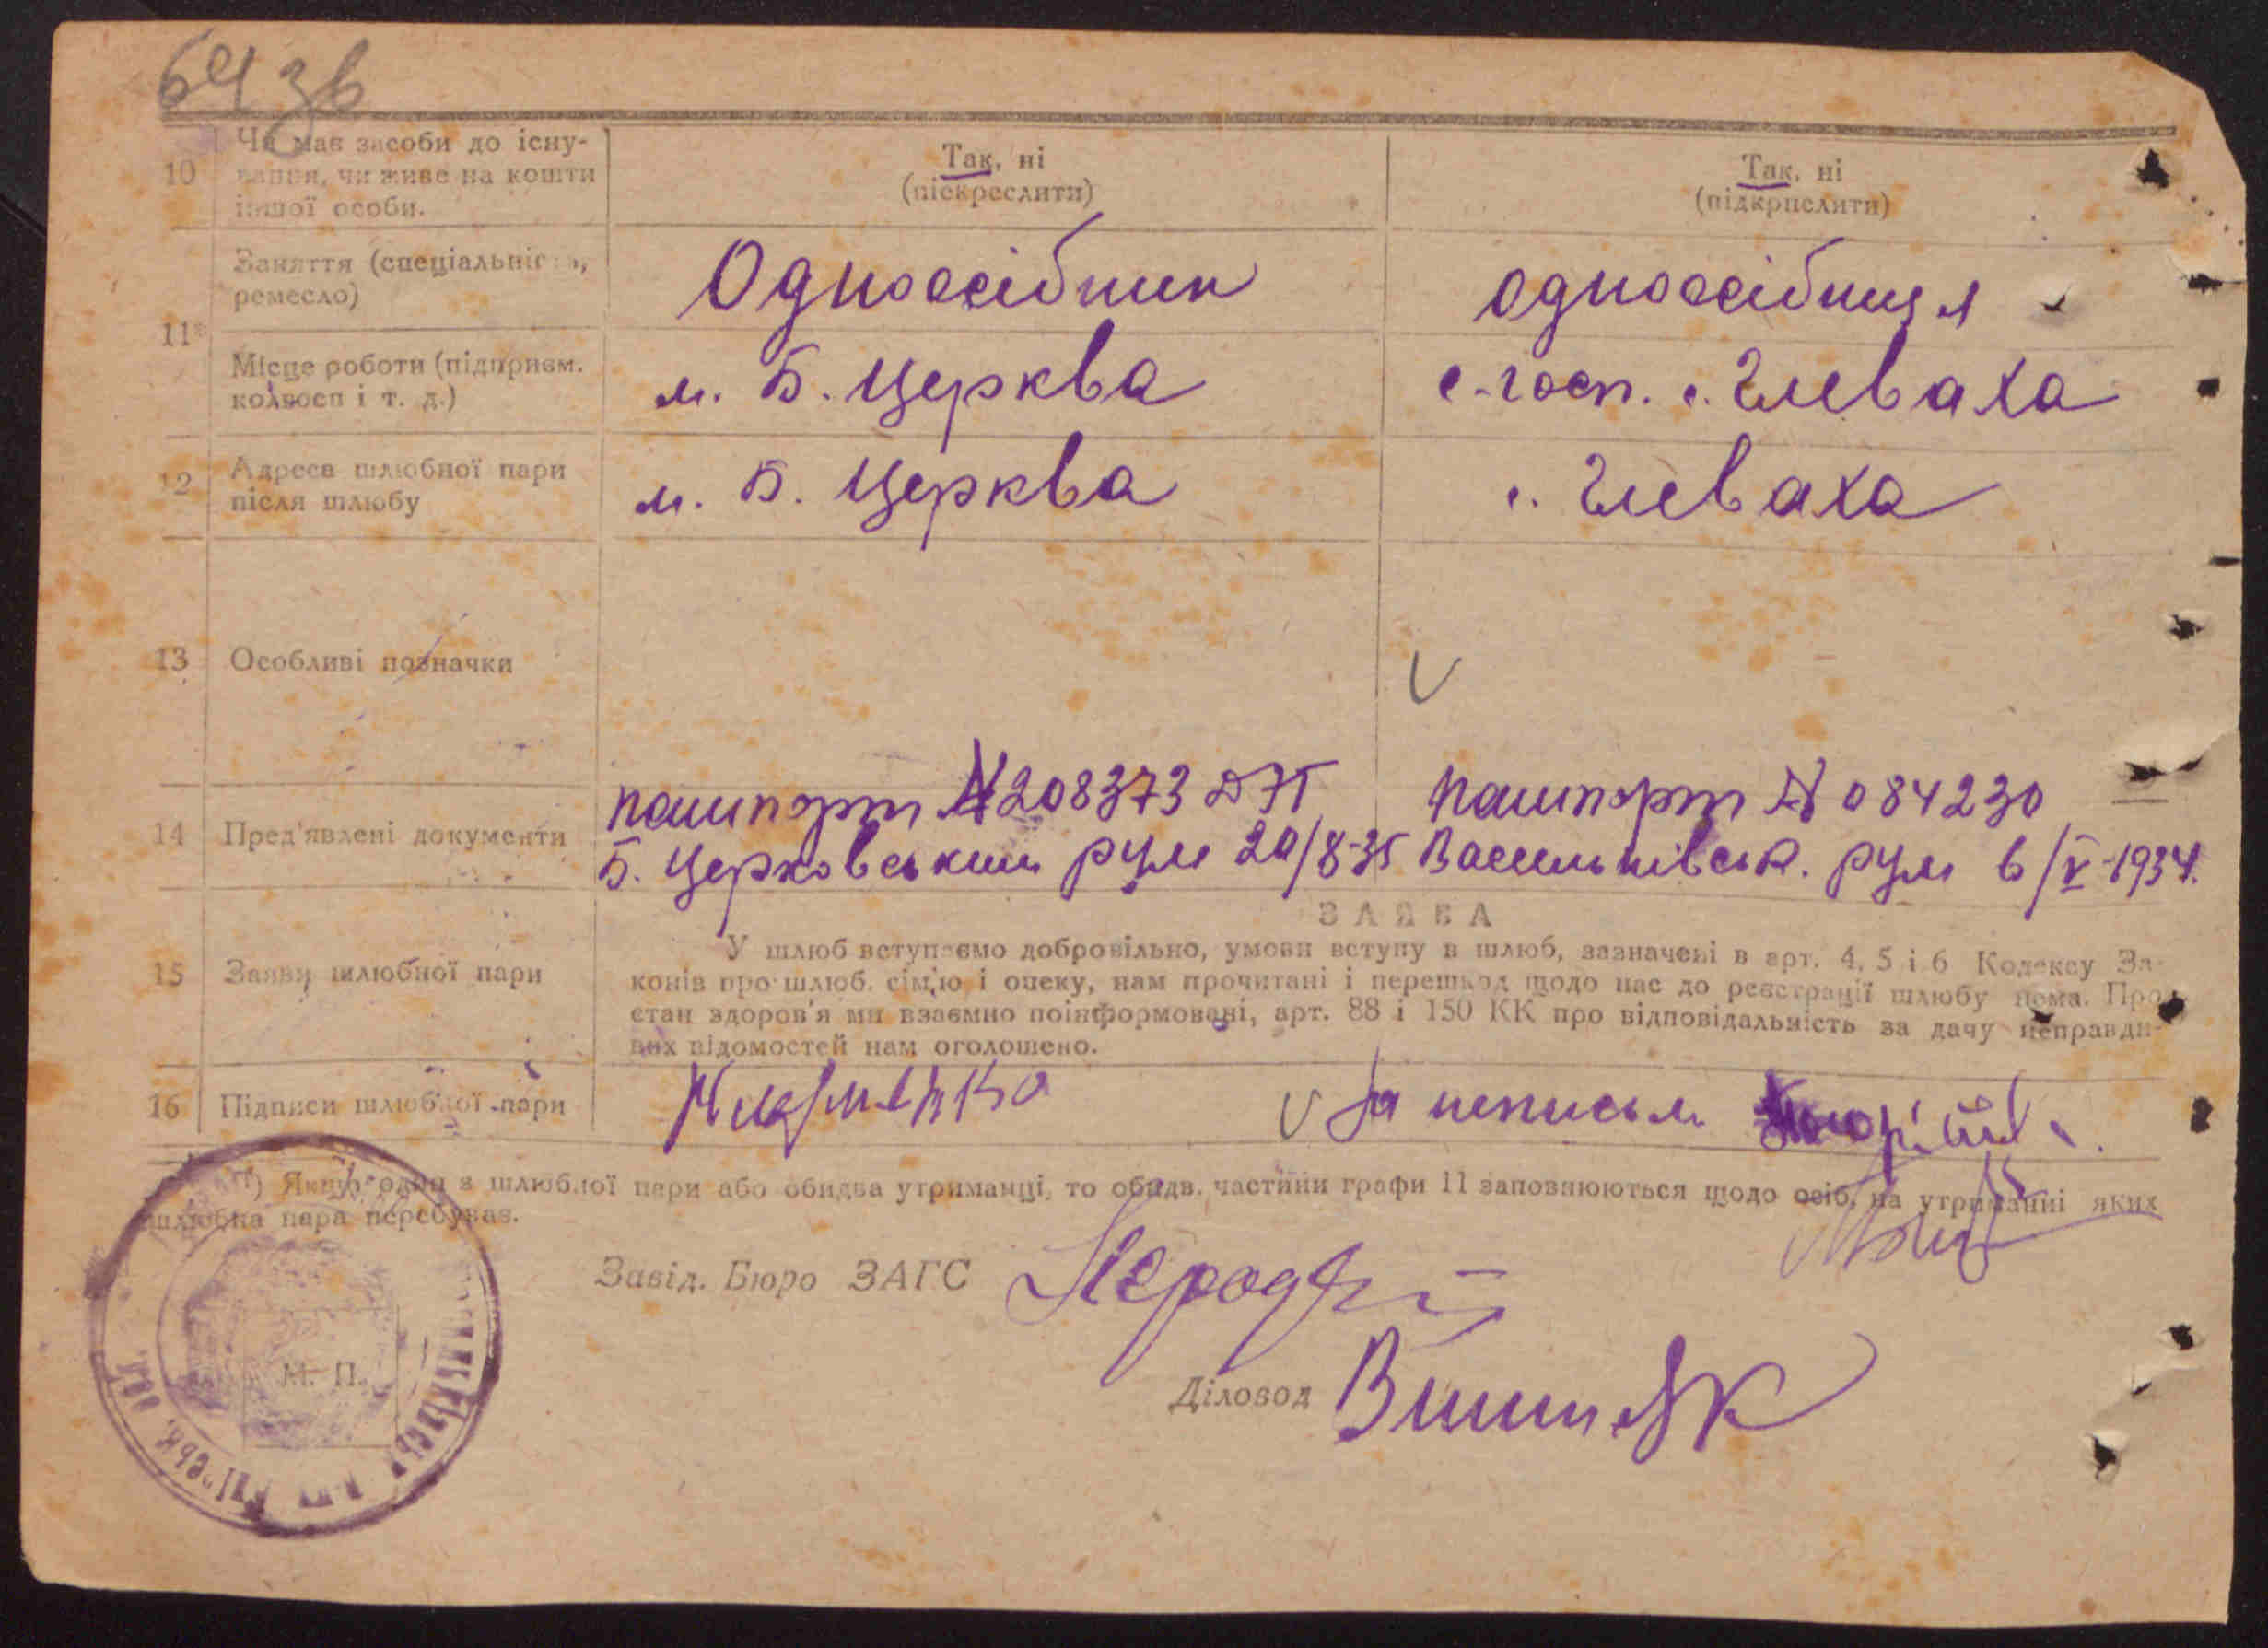 64 зв
10 Чи має засоби до існу-
вання, чи живе на кошти
іншої особи.
Так, ні
(піскреслити)
Так, ні
(підкрислити)
11*
Заняття (спеціальність,
ремесло)
Одноосібник
одноосібниця
Місце роботи (підприєм.
колгосп і т. д.)
м. Б. Церква
с-госп. с. Глеваха
12 Адреса шлюбної пари
після шлюбу
м. Б. Церква
с. Глеваха
13 Особливі позначки
14 Пред'явлені документи
пашпорт № 208373
Б. Церковським рум 20/8-35
пашпорт № 084230
Васильківськ. рум 6/V-1934.
15 Заяви шлюбної пари
ЗАЯВА
У шлюб вступаємо добровільно, умови вступу в шлюб, зазначені в арт. 4, 5 і 6 Кодексу За-
конів про шлюб. сім'ю і опеку, нам прочитані і перешкод щодо нас до реєстрації шлюбу нема. Про
стан здоров'я ми взаємно поінформовані, арт. 88 і 150 КК про відповідальність за дачу неправди-
вих відомостей нам оголошено.
16 Підписи шлюбної пари
За неписьм.
*) Якщо один з шлюбної пари або обидва утриманці, то обидв. частини графи 11 заповнюються щодо осіб, на утриманні яких
шлюбна пара перебуває.
Завід. Бюро ЗАГС
М. П.
Діловод